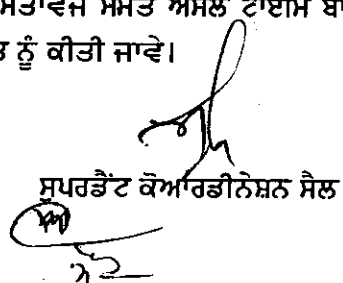 ਸਤਾਵੇਜ ਸਮੇਤ ਅਸਲ ਟਾਈਮ ਬਾ
ਨੂੰ ਕੀਤੀ ਜਾਵੇ।
ਸੁਪਰਡੈਂਟ ਕੋਆਰਡੀਨੇਸ਼ਨ ਸੈਲ